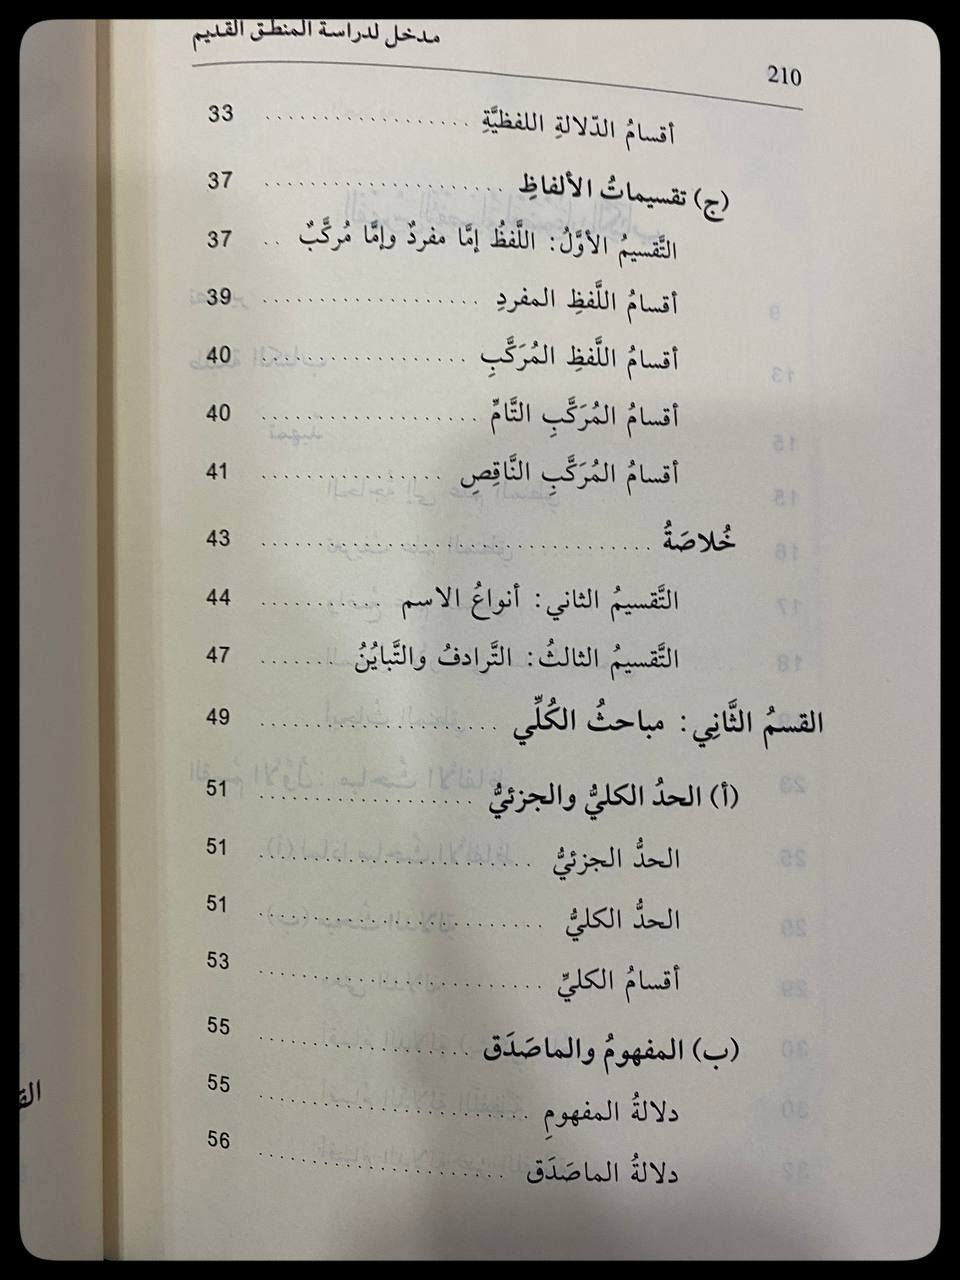 210
مدخل لدراسة المنطق القديم
أقسامُ الدّلالةِ اللفظيَّةِ .................. 33
(ج) تقسيماتُ الألفاظِ ..................... 37
التَّقسيمُ الأوَّلُ: اللَّفظُ إمَّا مفردٌ وإمَّا مُركَّبٌ .. 37
أقسامُ اللَّفظِ المفردِ ................... 39
أقسامُ اللَّفظِ المُرَكَّبِ .................. 40
أقسامُ المُرَكَّبِ التَّامِّ ................... 40
أقسامُ المُرَكَّبِ النَّاقِصِ ................ 41
خُلاصَةُ .................................. 43
التَّقسيمُ الثاني: أنواعُ الاسم ........... 44
التَّقسيمُ الثالثُ: التَّرادفُ والتَّبايُنُ ....... 47
القسمُ الثَّانِي: مباحثُ الكُلِّي ..................... 49
(أ) الحدُ الكليُّ والجزئيُّ .................. 51
الحدُّ الجزئيُّ ....................... 51
الحدُّ الكليُّ ........................ 51
أقسامُ الكليِّ ........................ 53
(ب) المفهومُ والماصَدَق .................. 55
دلالةُ المفهومِ ....................... 55
دلالةُ الماصَدَق ..................... 56